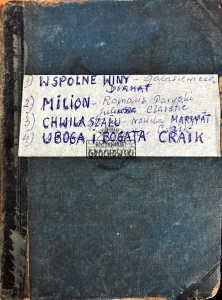 1) WSPÓLNE WINY - Gawalewicza
DRAMAT
2) MILION - Romans Paryski
Juliusza Claretie
3) CHWILA SZAŁU nowela MARRYAT
4) UBOGA I BOGATA CRAIK
GROCHOWSKI